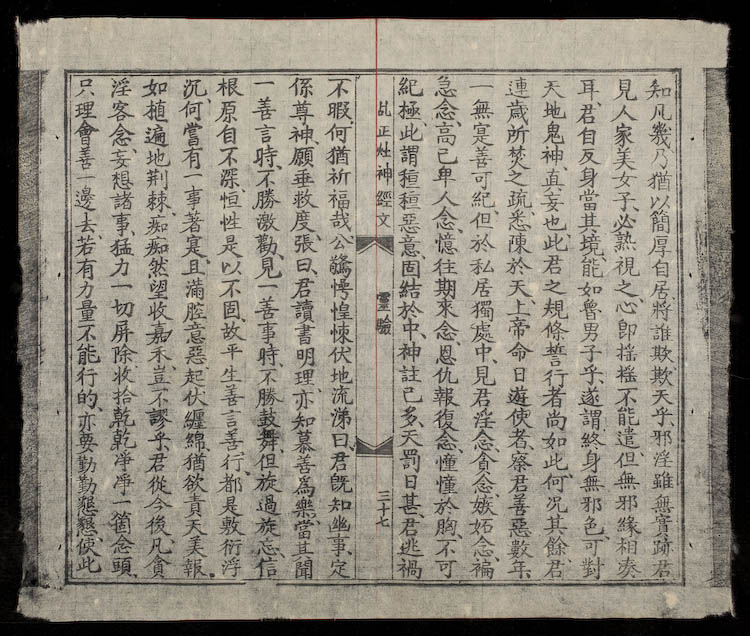 知凡幾乃猶以簡厚自居將誰欺欺天乎、邪淫雖無實跡君
見人家美女子、必熟視之心卽搖搖不能遣但無邪緣相湊
耳、君自反身當其境、能如魯男子乎、遂謂終身無邪色、可對
天地鬼神、真妄也、此君之規條誓行者尚如此、何況其餘君
連歲所焚之疏、悉陳於天、上帝命日遊使者、察君善惡、數年、
一無寔善可紀、但於私居獨處中、見君淫念、貪念、嫉妬念、褊
急念、高己卑人念、憶往期來念、恩仇報復念、憧憧於胸、不可
紀極、此謂種種惡意、固結於中、神註己多、天罰日甚、君逃禍
乩正灶神經文 靈驗 三十七
不暇、何猶祈福哉、公驚愕惶悚伏地流涕曰、君旣知幽事、定
係尊神、願垂救度、張曰、君讀書明理、亦知慕善爲樂、當其聞
一善言時、不勝激勸、見一善事時、不勝鼓舞、但旋過旋忘、信
根原自不深、恒性是以不固、故平生善言善行、都是敷衍浮
沉、何嘗有一事著寔、且滿腔意惡起伏纏綿、猶欲責天美報、
如植遍地荆棘、痴痴然望收嘉禾、豈不謬乎、君從今後、凡貪
淫客念、妄想諸事、猛力一切屏除、收拾乾乾凈凈一箇念頭、
只理會善一邊去、若有力量不能行的、亦要勤勤懇懇、使此